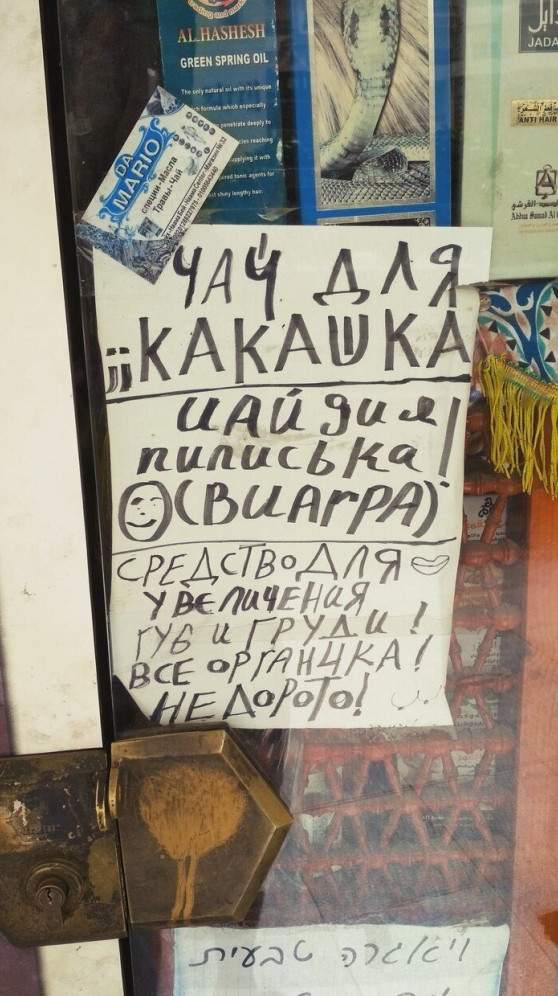 AL HASHESH
GREEN SPRING OIL
The only natural oil with its unique
formula which especially
penetrate deeply to
shiny lengthy hair.
JADA
ANTI HAIR
DA
MARIO
специи-Масла
Травы-Чай
ЧАЙ ДЛЯ
КАКАШКА
чай для
пиписька!
(ВИАгРА)
СРЕДСТВО ДЛЯ
УВЕЛИЧЕНИЯ
ГУБ И ГРУДИ!
ВСЕ ОРГАНИКА!
НЕ ДОРОГО!
ויאגרה טבעית